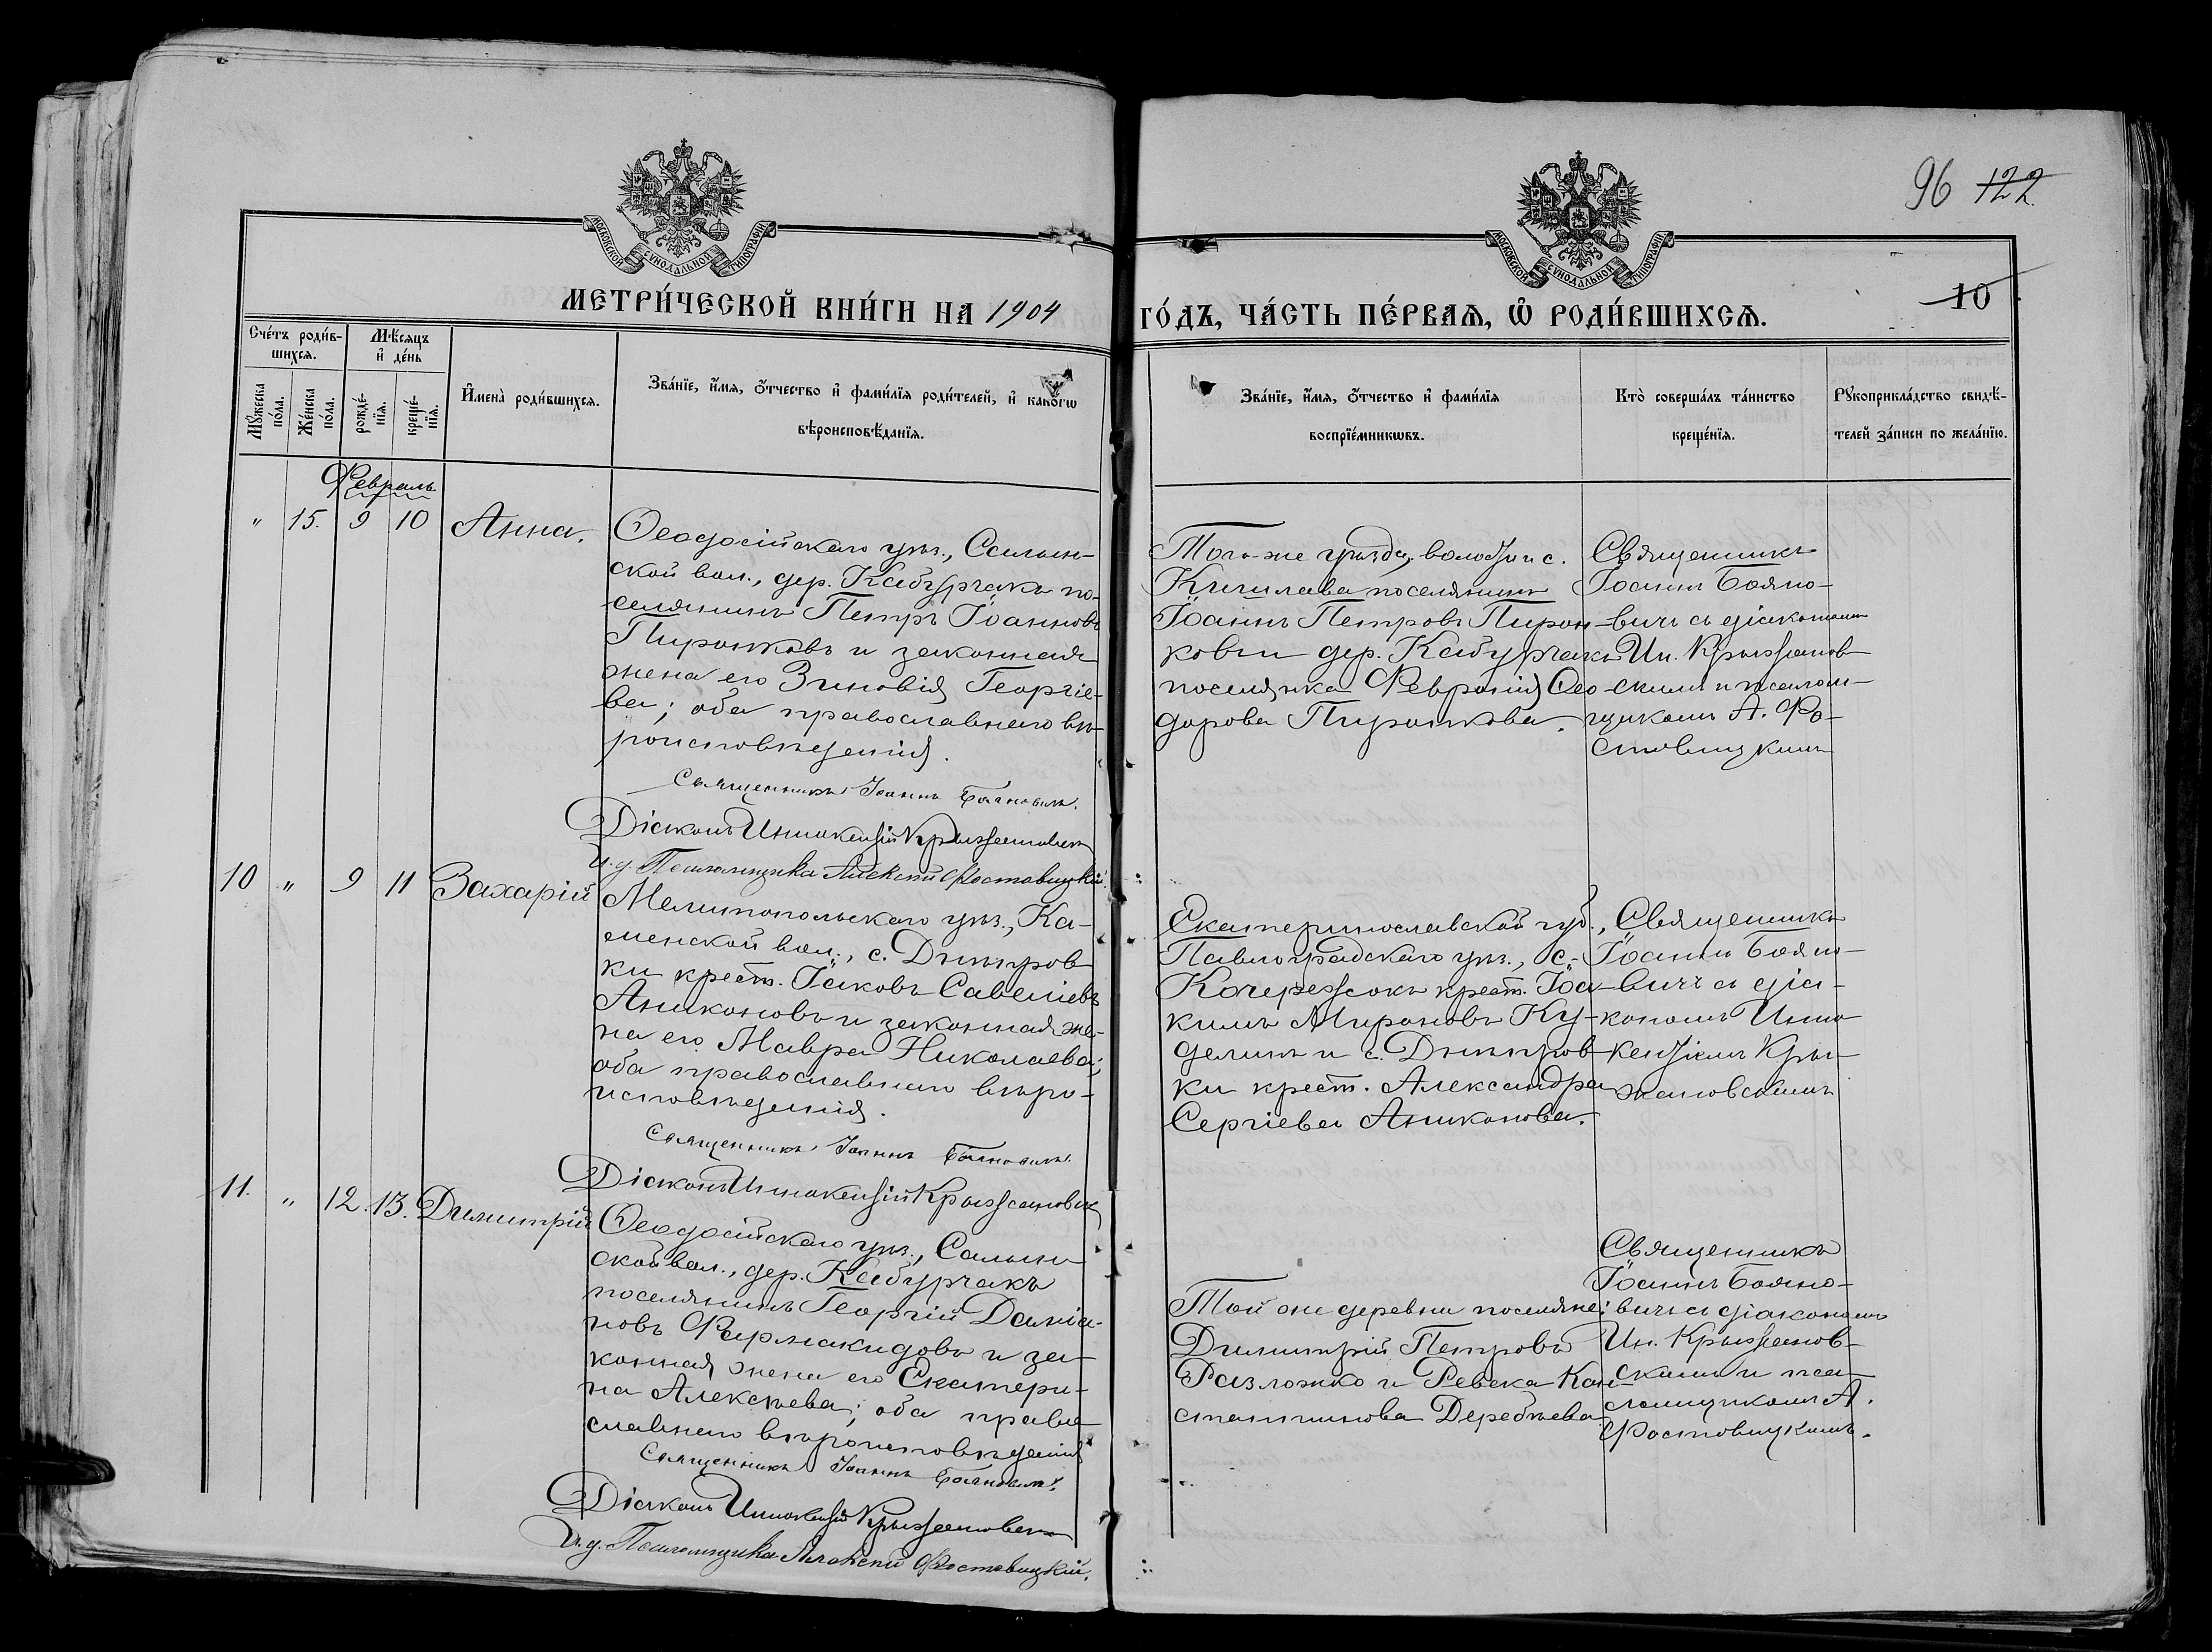 96 122
МОСКОВСКОЙ СѴНОДАЛЬНОЙ ТИПОГРАФІИ
МОСКОВСКОЙ СѴНОДАЛЬНОЙ ТИПОГРАФІИ
10
МЕТРИ́ЧЕСКОЙ КНИ́ГИ НА 1904
ГО́ДЪ, ЧА́СТЬ ПЕ́РВАѦ, Ѡ РОДИ́ВШИХСѦ.
Сче́тъ роди́в-
шихсѧ.
Мѣ́сяцъ
и҆ де́нь
Мꙋ́жеска
по́ла.
Же́нска
пола.
рожде́-
нїѧ.
креще́-
нїѧ.
И҆мена̀ роди́вшихсѧ.
Зва́нїе, и҆́мѧ, ѻ҆́тчество и҆ фами́лїѧ роди́телей, и҆ како́гѡ
вѣроисповѣ́данїѧ.
Зва́нїе, и҆́мѧ, ѻ҆́тчество и҆ фами́лїѧ
воспрїе́мникѡвъ.
Кто̀ соверша́лъ та́инство
креще́нїѧ.
Рꙋкоприкла́дство свидѣ́-
телей за́писи по жела́нїю.
Февраль
" 15. 9 10 Анна.
Ѳеодосійскаго уѣз., Салын-
ской вол., дер. Кабурчакъ по-
селянинъ Петръ Іоанновъ
Пиронковъ и законная
жена его Зиновія Георгіе-
ва; оба православнаго вѣ-
роисповѣданія.
Священникъ Іоаннъ Бояновичъ.
Діаконъ Иннокентій Крыжановскій
И. д. Псаломщика Алексій Фостовицкій.
Того-же уѣзда, волости и с.
Кишлава поселянинъ
Іоаннъ Петровъ Пирон-
ковъ и дер. Кабурчакъ
поселянка Февронія Ѳео-
дорова Пиронкова.
Священникъ
Іоаннъ Бояно-
вичъ съ діакономъ
Ин. Крыжанов-
скимъ и псалом-
щикомъ А. Фо-
стовицкимъ
10 " 9 11 Захарій
Мелитопольскаго уѣз., Ка-
менской вол., с. Днѣпров-
ки крест. Іаковъ Савеліевъ
Аниконовъ и законная же-
на его Мавра Николаева;
оба православнаго вѣро-
исповѣданія.
Священникъ Іоаннъ Бояновичъ.
Діаконъ Иннокентій Крыжановскій
Екатеринославской губ.,
Павлоградскаго уѣз., с.
Кочережокъ крест. Іоа-
кимъ Мироновъ Ку-
делинъ и с. Днѣпров-
ки крест. Александра
Сергіева Аниконова.
Священникъ
Іоаннъ Бояно-
вичъ съ діа-
кономъ Инно-
кентіемъ Кры-
жановскимъ
11. " 12. 13. Димитрій
Ѳеодосійскаго уѣз., Салын-
ской вол., дер. Кабурчакъ
поселянинъ Георгій Даміа-
новъ Фармакидовъ и за-
конная жена его Екатери-
на Алексѣева; оба право-
славнаго вѣроисповѣданія
Священникъ Іоаннъ Бояновичъ.
Діаконъ Иннокентій Крыжановскій
И. д. Псаломщика Алексій Фостовицкій.
Той же деревни поселяне:
Димитрій Петровъ
Разложко и Ревека Кон-
стантинова Деребѣева.
Священникъ
Іоаннъ Бояно-
вичъ съ діакономъ
Ин. Крыжанов-
скимъ и пса-
ломщикомъ А.
Фостовицкимъ.